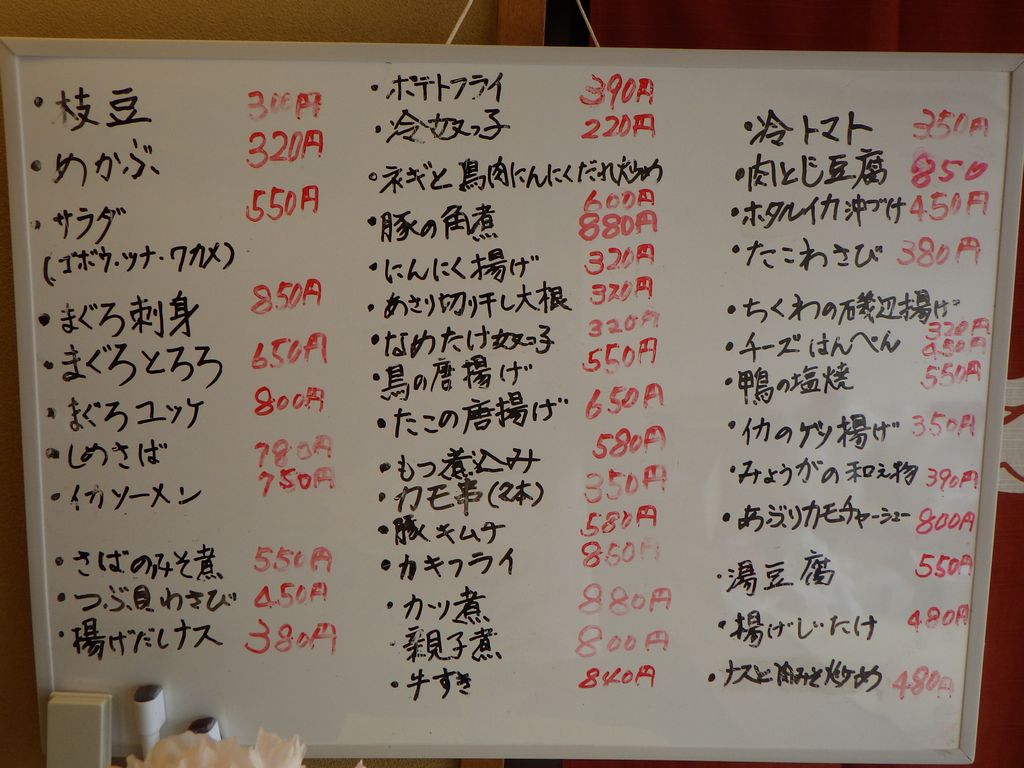 ・枝豆 300円
・めかぶ 320円
・サラダ 550円
(ゴボウ・ツナ・ワカメ)
・まぐろ刺身 850円
・まぐろとろろ 650円
・まぐろユッケ 800円
・しめさば 780円
・イカソーメン 750円
・さばのみそ煮 550円
・つぶ貝わさび 450円
・揚げだしナス 380円
・ポテトフライ 390円
・冷奴っ子 220円
・ネギと鳥肉にんにくだれ炒め
600円
・豚の角煮 880円
・にんにく揚げ 320円
・あさり切り干し大根 320円
・なめたけ奴っ子 320円
・鳥の唐揚げ 550円
・たこの唐揚げ 650円
・もつ煮込み 580円
・カモ串(2本) 350円
・豚キムチ 580円
・カキフライ 850円
・カツ煮 880円
・親子煮 800円
・牛すき 840円
・冷トマト 350円
・肉とじ豆腐 850
・ホタルイカ沖づけ 450円
・たこわさび 380円
・ちくわの磯辺揚げ
320円
・チーズはんぺん 450円
・鴨の塩焼 550円
・イカのゲソ揚げ 350円
・みょうがの和え物 390円
・あぶりカモチャーシュー 800円
・湯豆腐 550円
・揚げしいたけ 480円
・ナスと肉みそ炒め 480円